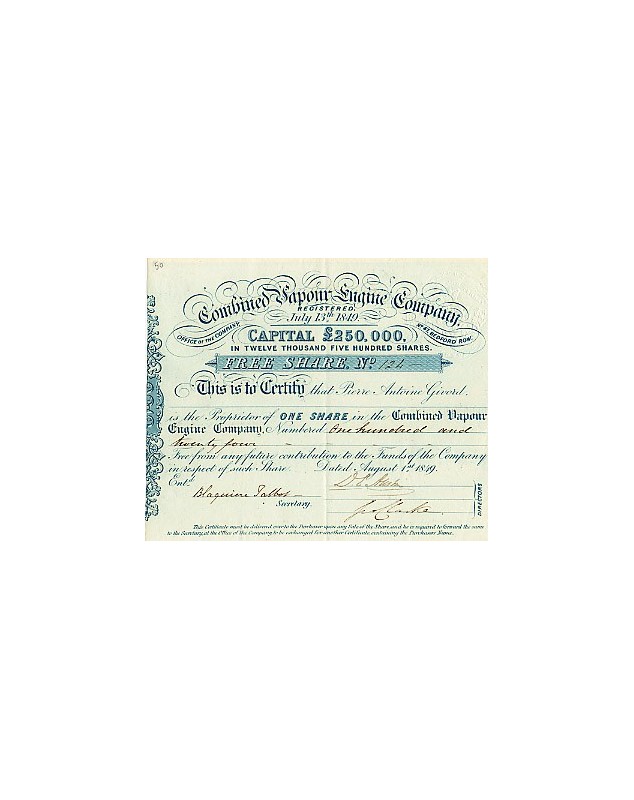 50
Combined Vapour-Engine Company,
REGISTERED.
July 13th 1849.
OFFICE OF THE COMPANY,
No. 41, BEDFORD ROW.
CAPITAL £250,000,
IN TWELVE THOUSAND FIVE HUNDRED SHARES.
FREE SHARE, No. 124
This is to Certify that Pierre Antoine Givord.
is the Proprietor of ONE SHARE in the Combined Vapour
Engine Company, Numbered One hundred and
twenty four
Free from any future contribution to the Funds of the Company
in respect of such Share. Dated August 1st 1849.
Entd.
Blaquiere Talbot
Secretary.
Clarke
DIRECTORS
This Certificate must be delivered over to the Purchaser upon any Sale of the Share, and he is required to forward the same
to the Secretary, at the Office of the Company, to be exchanged for another Certificate, containing the Purchasers Name.